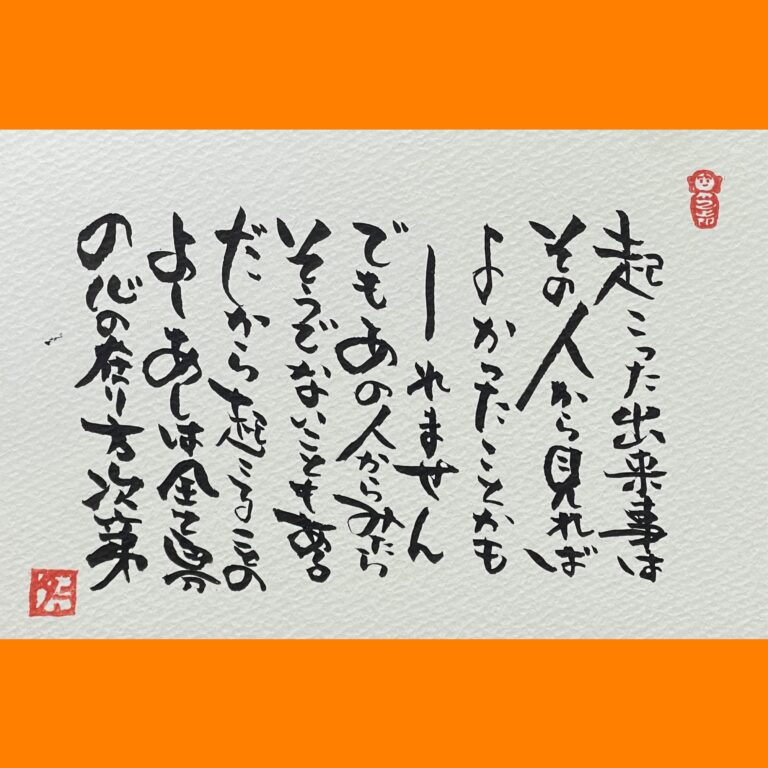 起こった出来事は
その人から見れば
よかったことかも
しれません
でもあの人からみたら
そうでないこともある
だから起こることの
よしあしは全て自分
の心の在り方次第